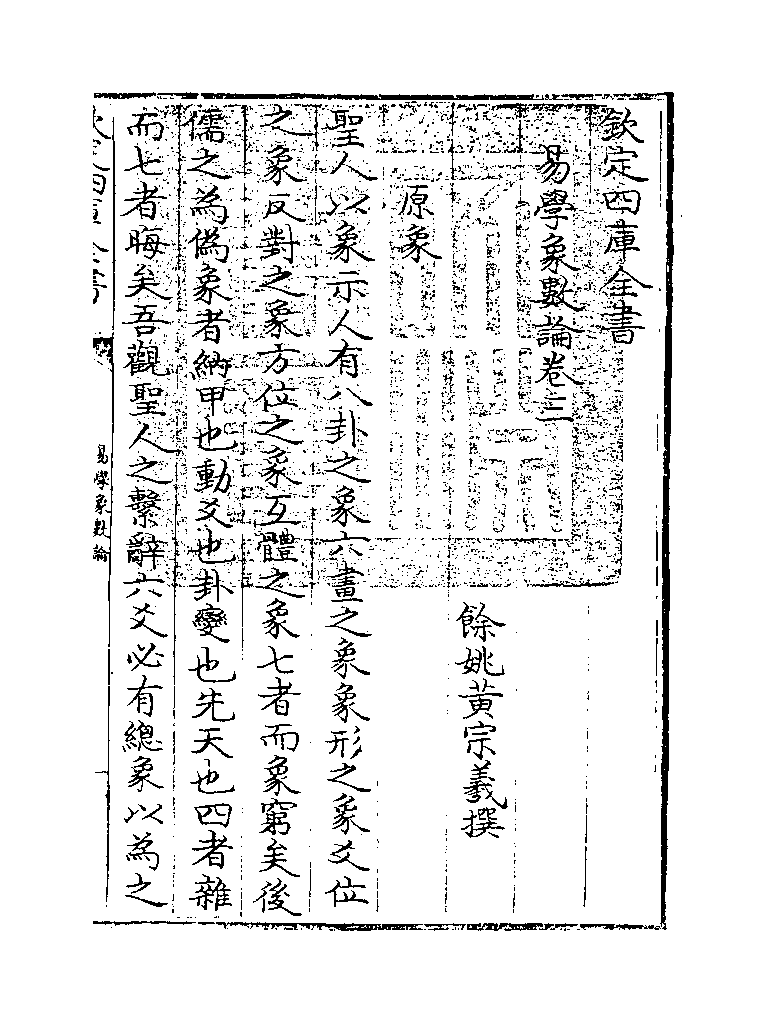 欽定四庫全書
易學象數論卷三
餘姚黃宗羲撰
原象
聖人以象示人有八卦之象六畫之象象形之象爻位
之象反對之象方位之象互體之象七者而象窮矣後
儒之為偽象者納甲也動爻也卦變也先天也四者雜
而七者晦矣吾觀聖人之繫辭六爻必有總象以為之
易學象數論